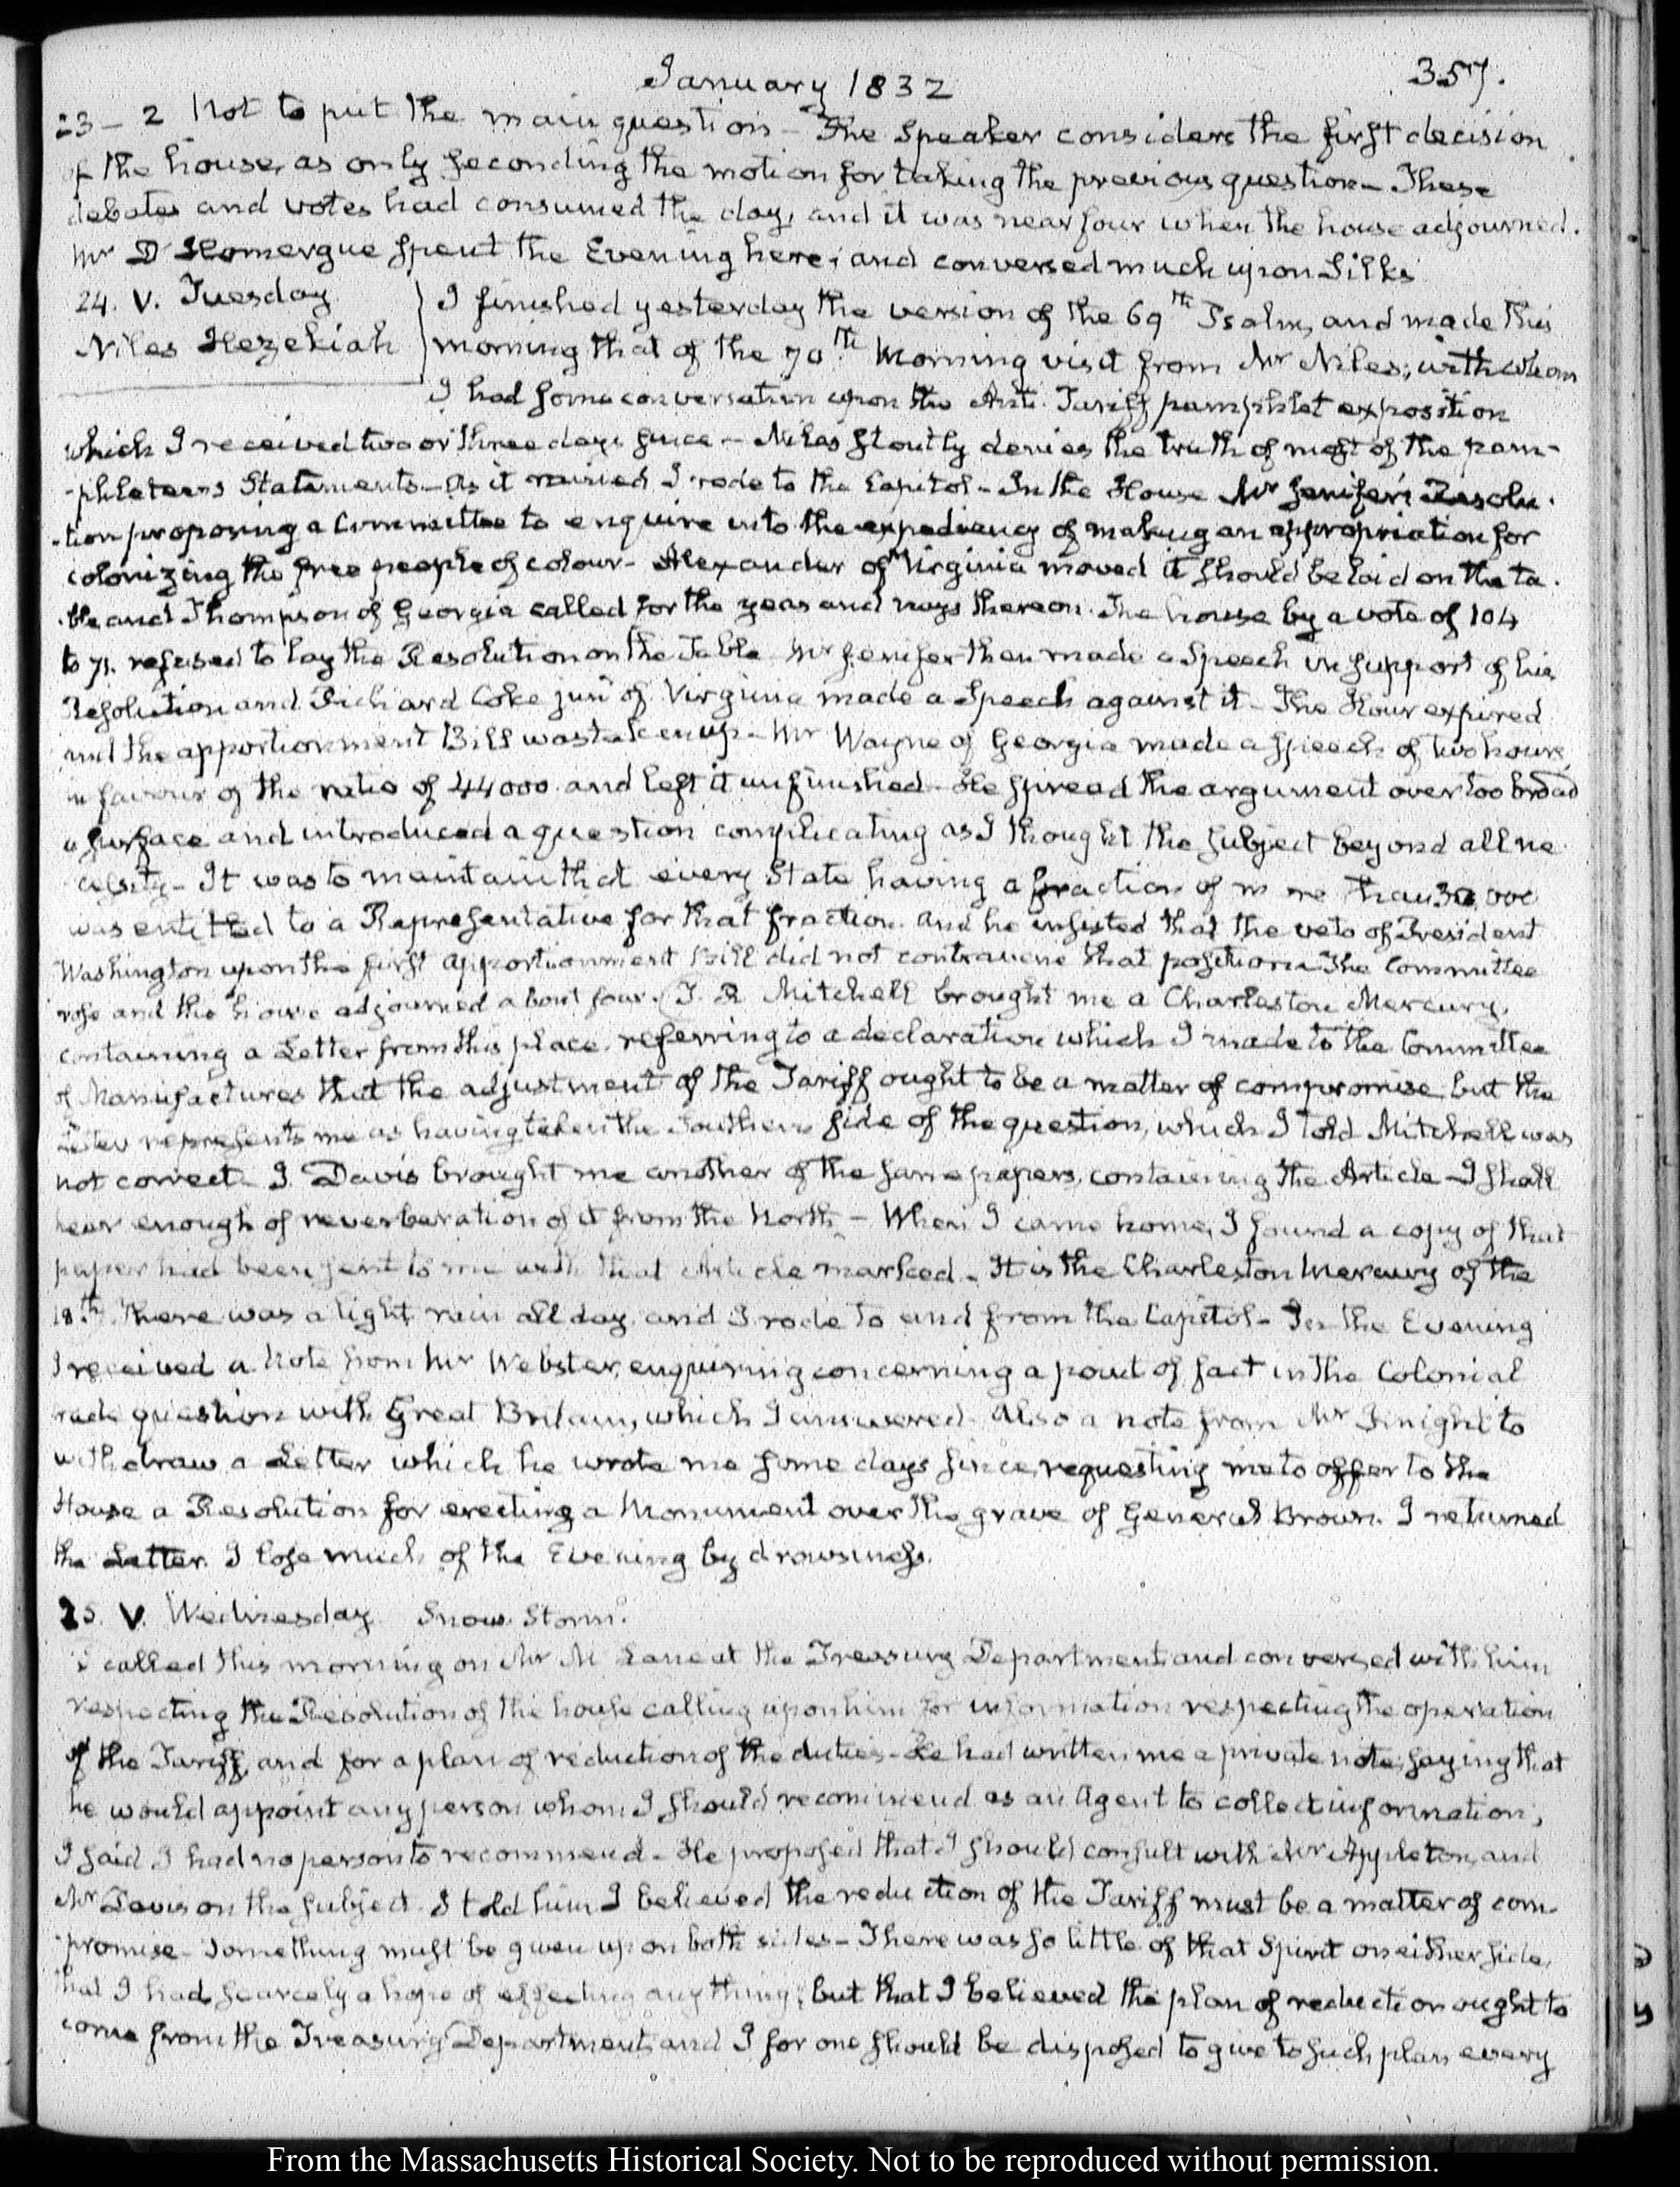 January 1832
357.
23-2 Not to put the main question - The Speaker considers the first decision
of the house, as only seconding the motion for taking the previous question - These
debates and votes had consumed the day, and it was near four when the house adjourned.
Mr D'Homergue spent the Evening here, and conversed much upon Silks
24. V. Tuesday
Niles Hezekiah
I finished yesterday the version of the 69th Psalm, and made this
morning that of the 70th Morning visit from Mr Niles; with whom
I had some conversation upon the Anti-Tariff pamphlet exposition
which I received two or three days since - Niles stoutly denies the truth of most of the pam-
-phleteers Statements - As it rained I rode to the Capitol - In the House Mr Jenifer's Resolu-
-tion proposing a Committee to enquire into the expediency of making an appropriation for
colonizing the free people of colour - Alexander of Virginia moved it should be laid on the ta-
-ble and Thompson of Georgia called for the yeas and nays thereon. The house by a vote of 104
to 71. refused to lay the Resolution on the Table Mr Jenifer then made a Speech in support of his
Resolution and Richard Coke junr of Virginia made a Speech against it - The Hour expired
and the apportionment Bill was taken up - Mr Wayne of Georgia made a speech of two hours
in favour of the ratio of 44000 and left it unfinished - He spread the argument over too broad
a surface and introduced a question complicating as I thought the subject beyond all ne
cessity - It was to maintain that every State having a fraction of more than 30,000
was entitled to a Representative for that fraction. and he insisted that the veto of President
Washington upon the first apportionment Bill did not contravene that position - The Committee
rose and the house adjourned about four. T. R Mitchell brought me a Charleston Mercury,
containing a Letter from this place, referring to a declaration which I made to the Committee
of Manufactures that the adjustment of the Tariff ought to be a matter of compromise but the
Letter represents me as having taken the Southern side of the question, which I told Mitchell was
not correct. J. Davis brought me another of the same papers, containing the Article - I shall
hear enough of reverberation of it from the North - When I came home, I found a copy of that
paper had been sent to me with that Article marked - It is the Charleston Mercury of the
18th. There was a light rain all day and I rode to and from the Capitol - In the Evening
I received a Note from Mr Webster, enquiring concerning a point of fact in the Colonial
trade question with Great Britain, which I answered. Also a note from Mr to
withdraw a Letter which he wrote me some days since, requesting me to offer to the
House a Resolution for erecting a Monument over the grave of General Brown. I returned
the Letter. I lose much of the Evening by drowsiness.
25. V. Wednesday. Snow Storm.
I called this morning on Mr McLane at the Treasury Department and conversed with him
respecting the Resolution of the house calling upon him for information respecting the operation
of the Tariff, and for a plan of reduction of the duties - He had written me a private note, saying that
he would appoint any person whom I should recommend as an Agent to collect information,
I said I had no person to recommend - He proposed that I should consult with Mr Appleton, and
Mr Davis on the subject. I told him I believed the reduction of the Tariff must be a matter of com-
-promise - Something must be given up on both sides - There was so little of that Spirit on either side,
that I had scarcely a hope of effecting any thing; but that I believed the plan of reduction ought to
come from the Treasury Department, and I for one should be disposed to give to such plan every
From the Massachusetts Historical Society. Not to be reproduced without permission.